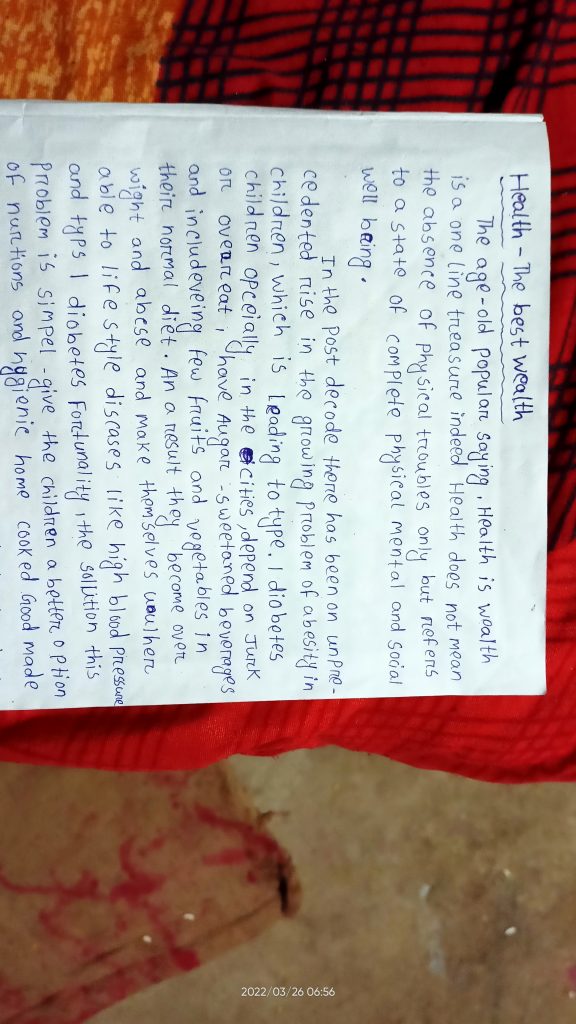 Health - The best wealth
The age-old popular saying, Health is wealth
is a one line treasure indeed Health does not mean
the absence of physical troubles only but refers
to a state of complete physical mental and social
well being.
In the post decode there has been on unpre-
cedented rise in the growing problem of abesity in
children, which is leading to type. 1 diobetes
children opceially in the cities, depend on Junk
or overeat, have Augar-sweetaned beverages
and includeveing few fruits and vegetables in
their normal diet. An a result they become over
wight and abese and make themselves
able to life style discases like high blood pressure
and typs 1 diobetes Fortunality, the solution this
problem is simpel - give the children a better option
of nurctions and hygienic home cooked Good made
2022/03/26 06:56